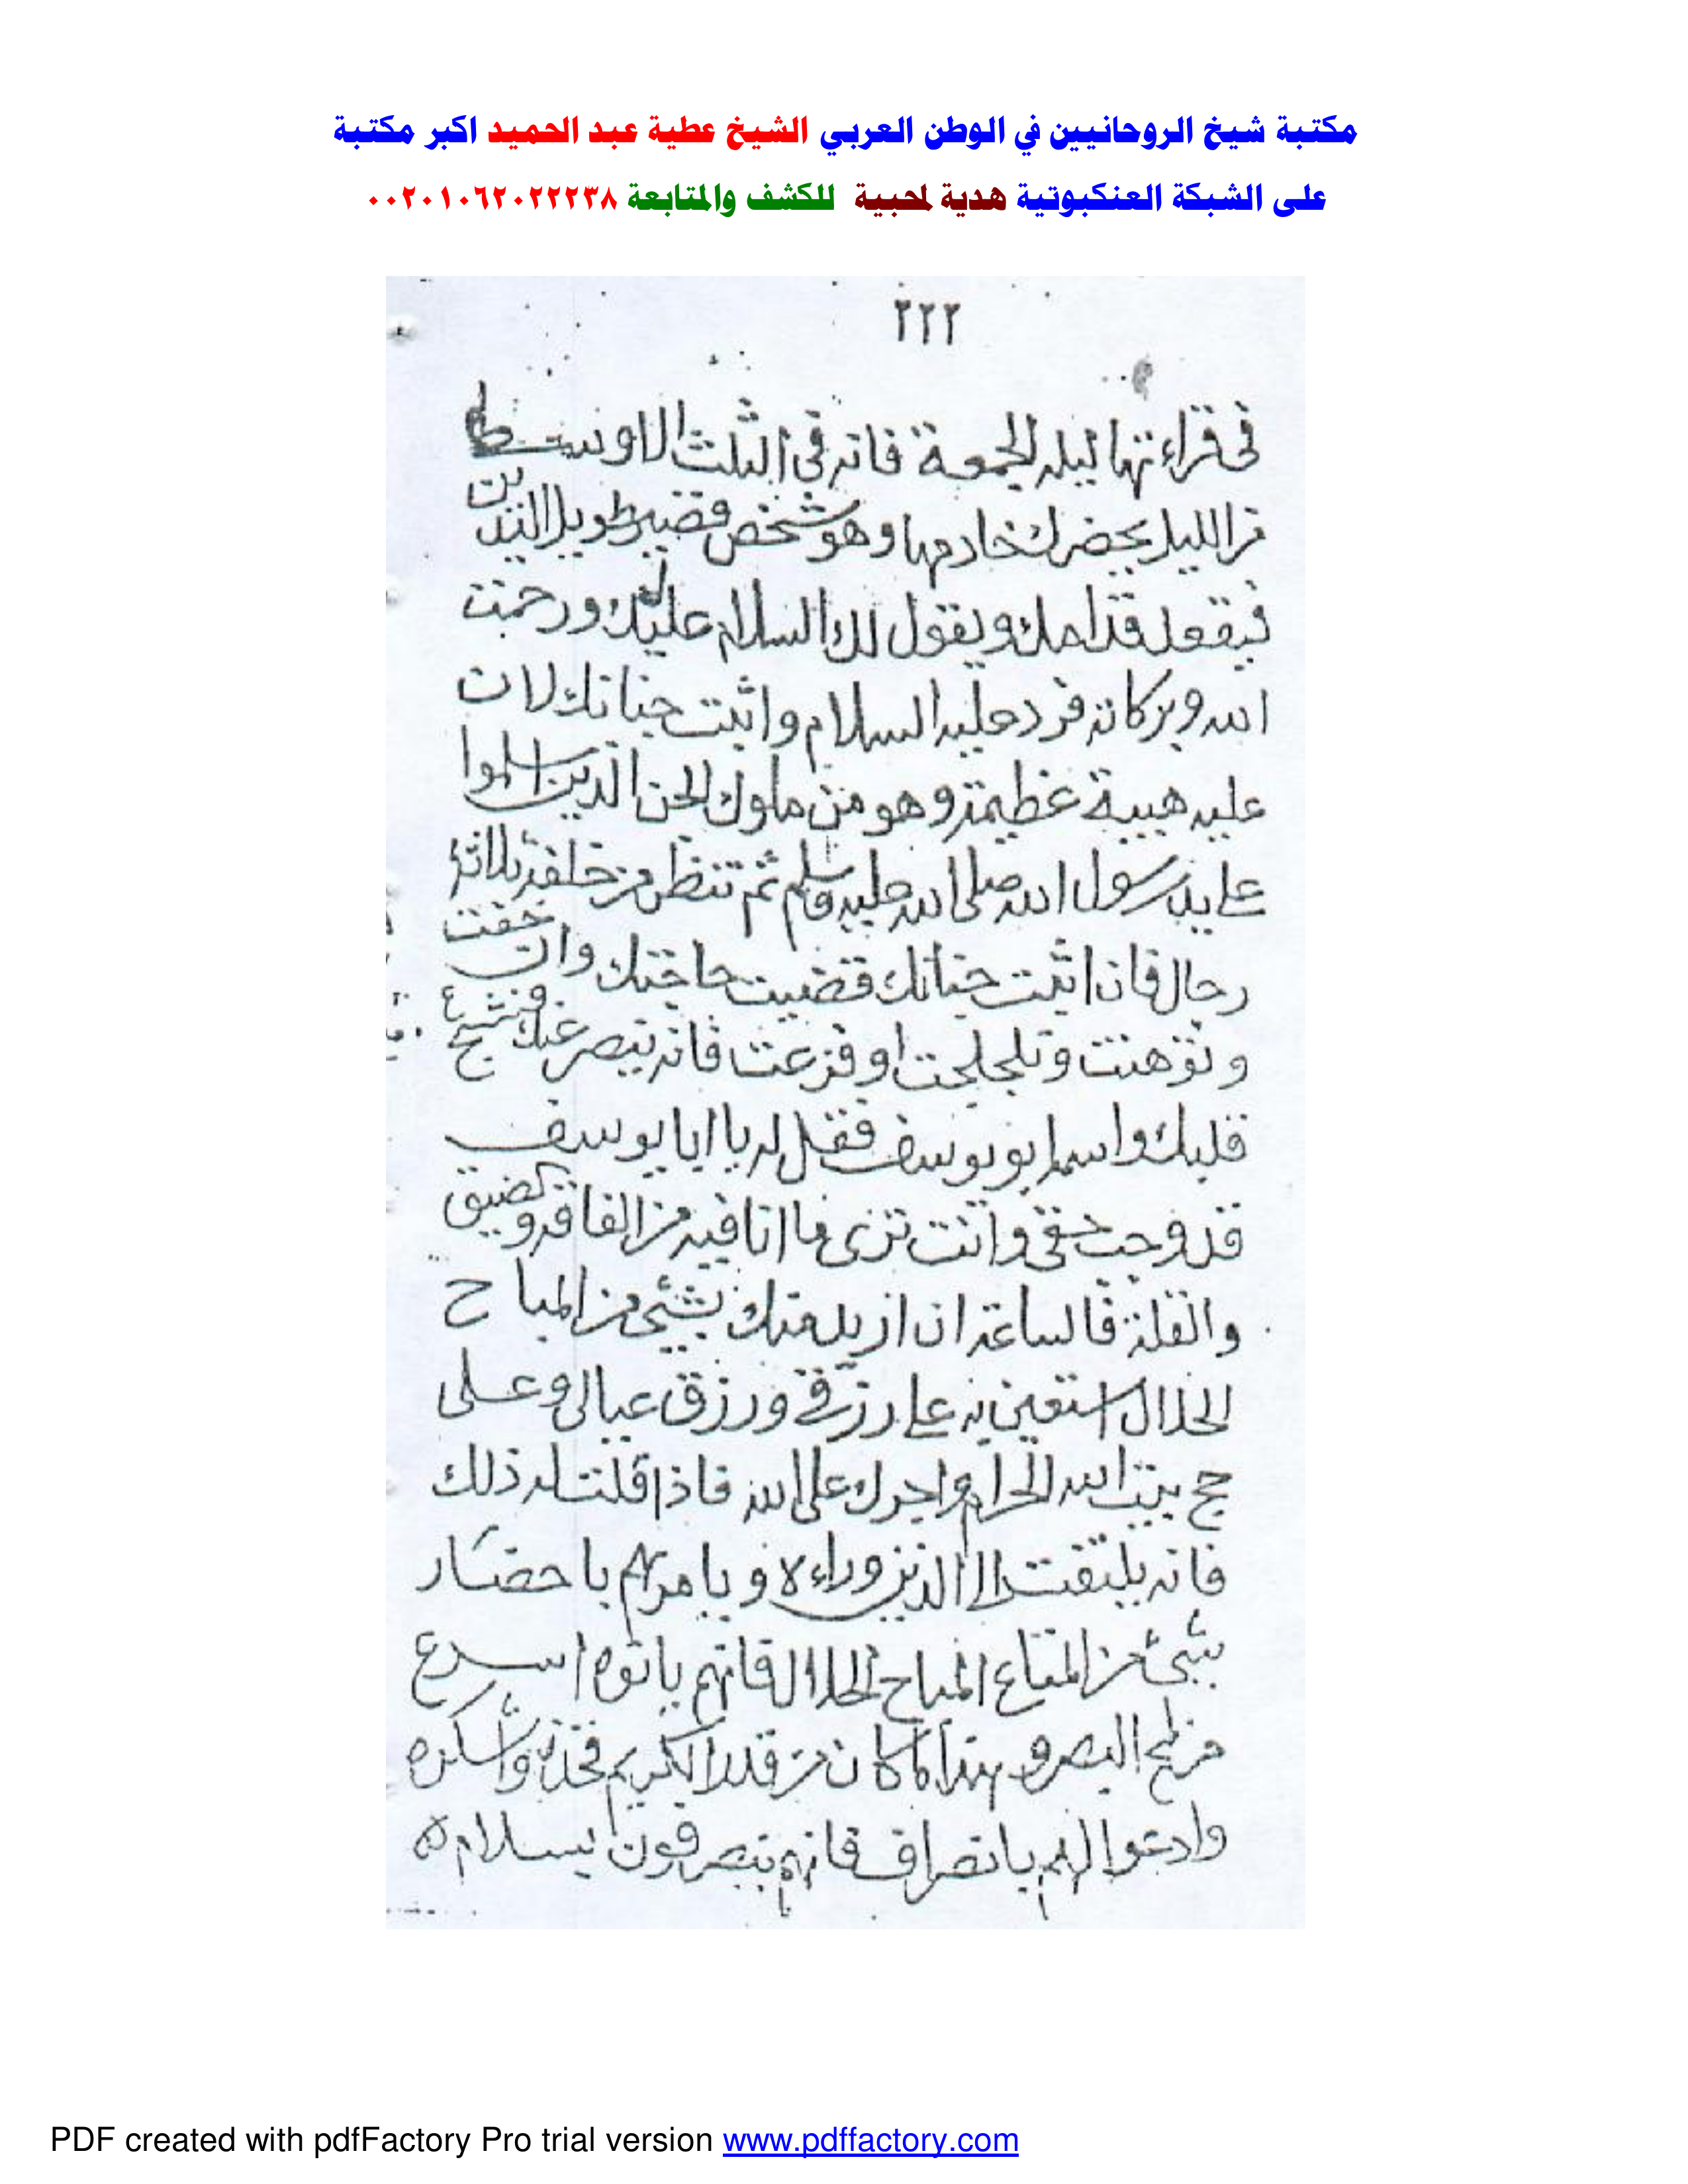 مكتبة شيخ الروحانيين في الوطن العربي الشيخ عطية عبد الحميد اكبر مكتبة
على الشبكة العنكبوتية هدية لمحبية للكشف والمتابعة ٠٠٢٠١٠٦٢٠٢٢٢٣٨
٢٢٢
في قراءتها ليله الجمعة فانه في الثلث الاوسط
من الليل يحضرك خادمها وهو شخص قصير طويل اليدين
فيقعد قدامك ويقول لك السلام عليك ورحمت
الله وبركاته فرد عليه السلام واثبت جنانك لان
عليه هيبة عظيمة وهو من ملوك الجن الذين اسلموا
على يد رسول الله صلى الله عليه وسلم ثم تنظر من خلفه ثلاثة
رجال فان اثبت جنانك قضيت حاجتك وان خفت
وتوهنت وتلجلجت او فزعت فانه ينصر عنك
قلبك واسمه ابو يوسف فقل له يا ابا يوسف
قد وجب حقي وانت ترى ما انا فيه من الفاقة وضيق
والقلة فالساعة ان اريد منك بشئ من المباح
الحلال استعين به على رزقي ورزق عيالي وعلى
حج بيت الله الحرام واجرك على الله فاذا قلت له ذلك
فانه يلتفت الى الذين وراءه ويامرهم باحضار
شئ من المتاع المباح الحلال فانهم ياتوه اسرع
من لمح البصر وهذا ما كان من قدر الكريم فخذه واشكره
وادعوا لهم بانصراف فانهم ينصرفون بسلامه
PDF created with pdfFactory Pro trial version www.pdffactory.com